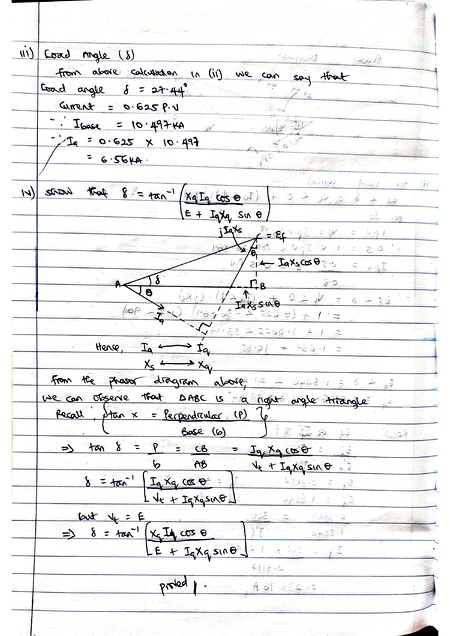 iii) Load Angle (δ)
from above calculation in (ii) we can say that
Load angle δ = 27.44°
Current = 0.625 P.V
∵ Ibase = 10.497KA
∵ Ia = 0.625 × 10.497
= 6.56KA.
iv) show that δ = tan⁻¹ (XqIq cos θ / E + IqXq sin θ)
jIaXs
C = Ef
θ
IaXscosθ
A
δ
θ
B
Ia
IaXssinθ
Hence, Ia ⟷ Iq
Xs ⟷ Xq
from the phasor diagram above,
we can observe that ΔABC is a right angle triangle
Recall, {tan x = Perpendicular (P) / Base (b)}
⇒ tan δ = P / b = CB / AB = IqXq cos θ / Vt + IqXq sin θ
δ = tan⁻¹ [IqXq cos θ / Vt + IqXq sin θ]
but Vt = E
⇒ δ = tan⁻¹ [XqIq cos θ / E + IqXq sin θ]
proved